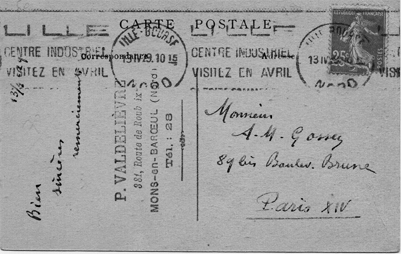 CARTE POSTALE
LILLE
CENTRE INDUSTRIEL
VISITEZ EN AVRIL
LILLE-BOURSE
IV29.10
NORD
LILLE
CENTRE INDUSTRIEL
VISITEZ EN AVRIL
13 IV
NORD
25c
Correspond
13/4 29
Bien
sincères
remerciements
P. VALDELIÈVRE
381, Route de Roubaix
MONS-en-BARŒUL (Nord)
Tél.: 28
Monsieur
A-M. Gossez
89bis Boulev. Brune
Paris XIV